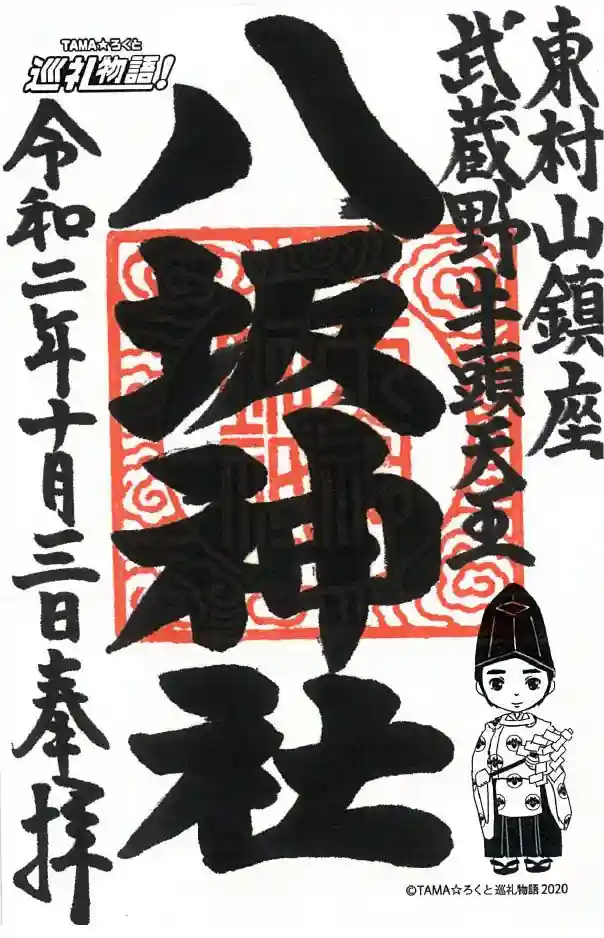 東村山鎮座
武蔵野牛頭天王
八坂神社
令和二年十月三日奉拝
TAMA☆ろくと
巡礼物語!
©TAMA☆ろくと巡礼物語2020